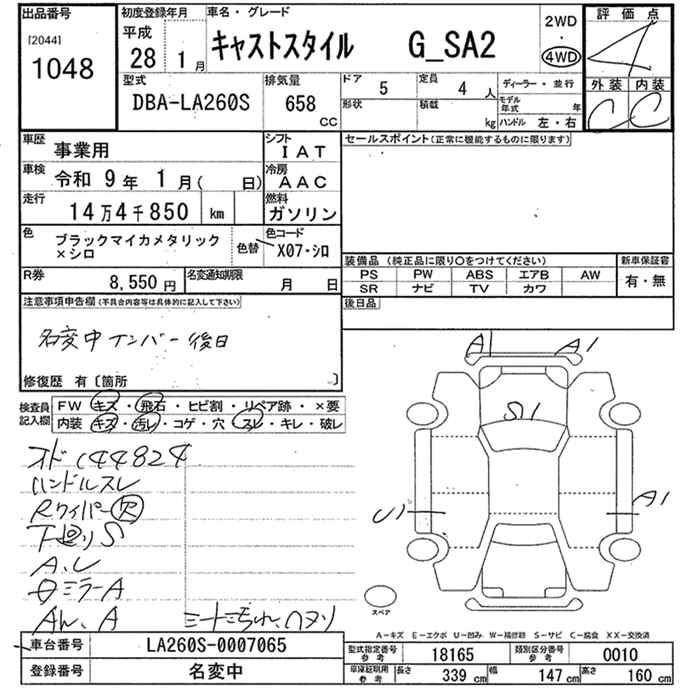 出品番号
[2044]
1048
初度登録年月
平成
28 1月
車名・グレード
キャストスタイル G_SA2
2WD
・
4WD
評価点
4
外装 内装
C C
型式
DBA-LA260S
排気量
658
CC
ドア 5
定員 4人
形状
積載 kg
ディーラー・並行
モデル年式 年
ハンドル 左・右
車歴 事業用
シフト
IAT
車検 令和 9年 1月( 日)
冷房
AAC
走行 14万4千850 km
燃料
ガソリン
色 ブラックマイカメタリック
×シロ
色替
色コード
X07・シロ
R券 8,550円
名変通知期限 月 日
セールスポイント(正常に機能するものに限ります)
装備品 (純正品に限り○をつけてください)
PS PW ABS エアB AW
SR ナビ TV カワ
新車保証書
有・無
後日品
注意事項申告欄(不具合内容等は具体的に記入して下さい)
名変中ナンバー後日
修復歴 有〔箇所 〕
検査員
記入欄
FW キズ・飛石・ヒビ割・リペア跡・×要
内装 キズ・汚レ・コゲ・穴・スレ・キレ・破レ
オド144824
ハンドルスレ
Rワイパー欠
下廻りS
A.U
ミラーA
A
A1 A1
S1
U1
A1
スペア
A-キズ E-エクボ U-凹み W-補修跡 S-サビ C-腐食 XX-交換済
車台番号 LA260S-0007065
登録番号 名変中
型式指定番号
参考
18165
類別区分番号
参考
0010
車庫証明用
参考
長さ 339 cm
幅 147 cm
高さ 160 cm